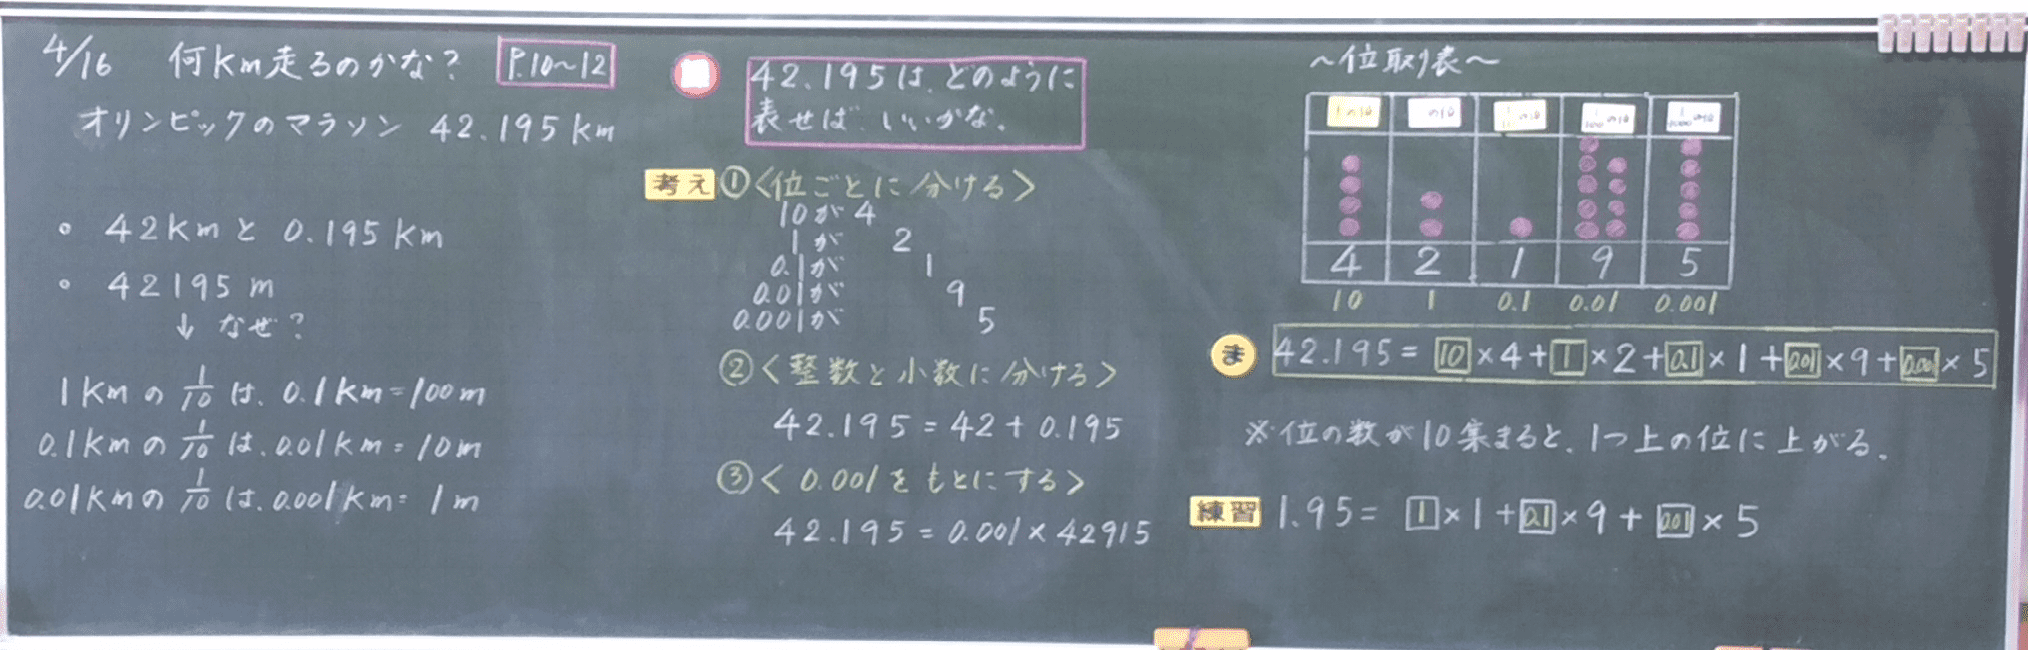 4/16 何km走るのかな? P.10~12
オリンピックのマラソン 42.195km
。 42kmと 0.195km
。 42195m
↓ なぜ?
1kmの 1/10 は、0.1km=100m
0.1kmの 1/10 は、0.01km=10m
0.01kmの 1/10 は、0.001km=1m
42.195は、どのように
表せば いいかな。
考え ①<位ごとに分ける>
10が4
1が 2
0.1が 1
0.01が 9
0.001が 5
②<整数と小数に分ける>
42.195=42+0.195
③<0.001をもとにする>
42.195=0.001×42915
~位取り表~
の位 の位 の位 1/100の位 1/1000の位
4 2 1 9 5
10 1 0.1 0.01 0.001
ま 42.195= 10×4+1×2+0.1×1+0.01×9+0.001×5
※位の数が10集まると、1つ上の位に上がる。
練習 1.95= 1×1+0.1×9+0.01×5